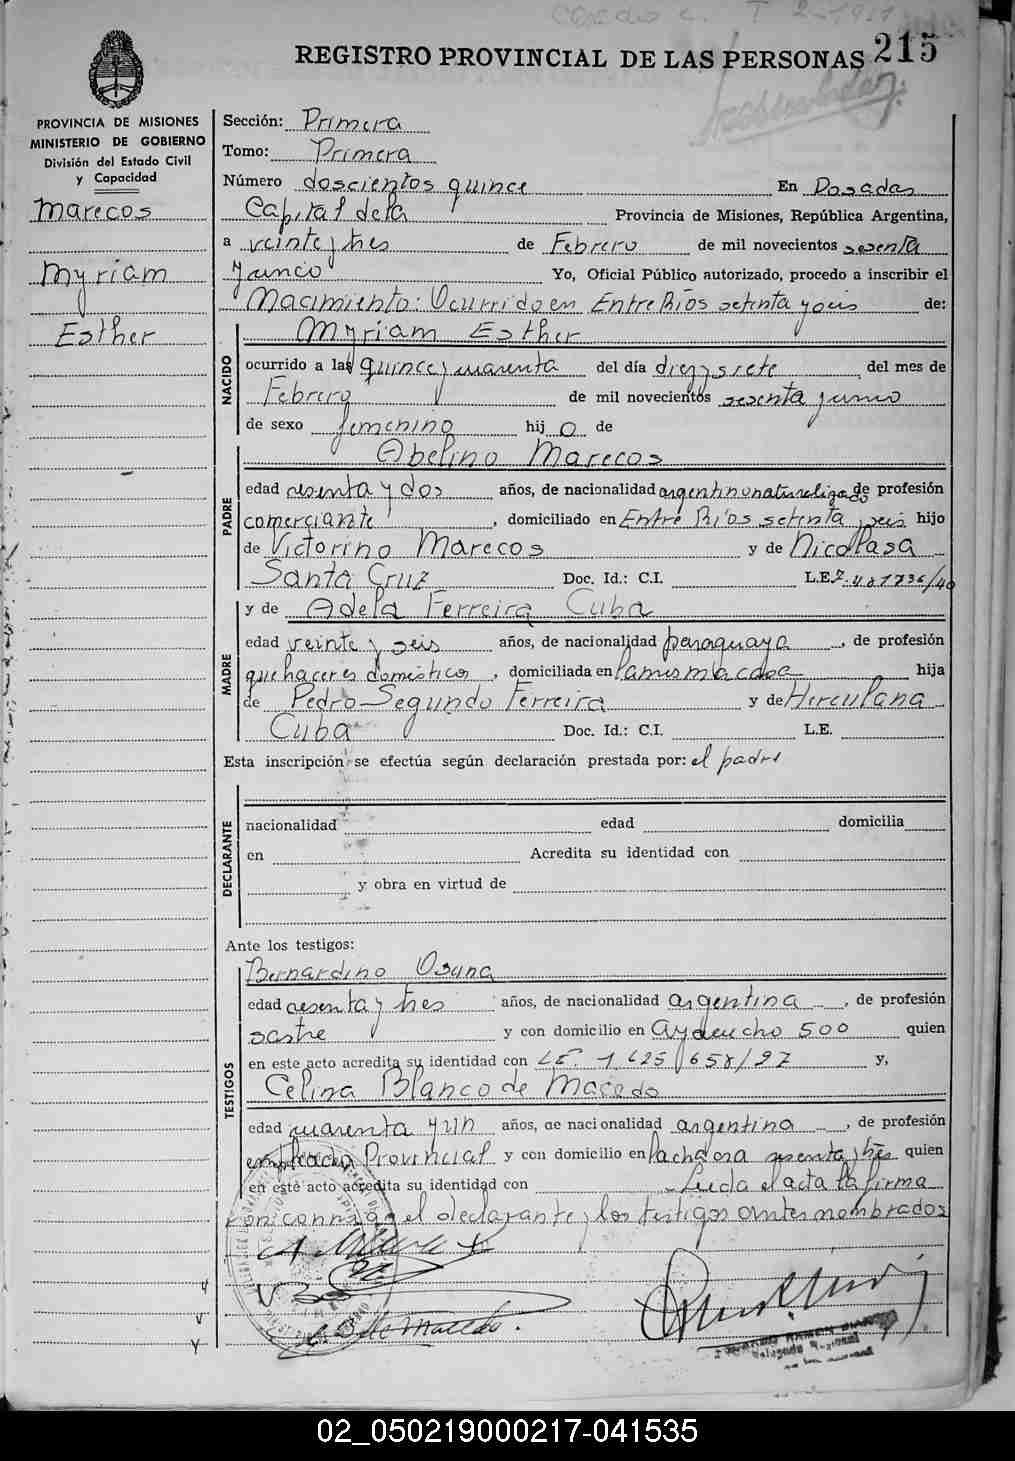 REGISTRO PROVINCIAL DE LAS PERSONAS 215
PROVINCIA DE MISIONES
MINISTERIO DE GOBIERNO
División del Estado Civil
y Capacidad
Marecos
Myriam
Esther
Sección: Primera
Tomo: Primera
Número doscientos quince En Posadas
Capital dela Provincia de Misiones, República Argentina,
a veinte y tres de Febrero de mil novecientos sesenta
y unció Yo, Oficial Público autorizado, procedo a inscribir el
Nacimiento: Ocurrido en Entre Ríos setenta y seis de:
Myriam Esther
NACIDO
ocurrido a las quince y cuarenta del día diez y siete del mes de
Febrero de mil novecientos sesenta y uno
de sexo femenino hij a de
Abelino Marecos
PADRE
edad sesenta y dos años, de nacionalidad argentino naturalizado de profesión
comerciante, domiciliado en Entre Ríos setenta y seis hijo
de Victorino Marecos y de Nicolasa
Santa Cruz Doc. Id.: C.I. L.E.
y de Adela Ferreira Cuba
MADRE
edad veinte y seis años, de nacionalidad paraguaya, de profesión
quehaceres domésticos, domiciliada en la misma casa hija
de Pedro Segundo Ferreira y de Herculana
Cuba Doc. Id.: C.I. L.E.
Esta inscripción se efectúa según declaración prestada por: el padre
DECLARANTE
nacionalidad edad domicilia
en Acredita su identidad con
y obra en virtud de
Ante los testigos:
Bernardino Osuna
TESTIGOS
edad sesenta y tres años, de nacionalidad argentina, de profesión
sastre y con domicilio en Ayacucho 500 quien
en este acto acredita su identidad con L.E. 1.625.658/97 y,
Celina Blanco de Macedo
edad cuarenta y un años, de nacionalidad argentina, de profesión
empleada Provincial y con domicilio en Lachaosa sesenta y tres quien
en este acto acredita su identidad con Leida el acta la firma
conmigo el declarante y los testigos antes nombrados
02_050219000217-041535